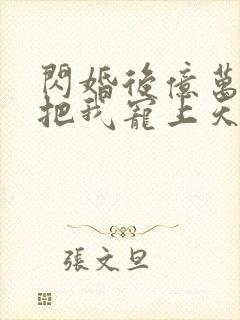 閃婚後億萬
把我寵上天
張文旦